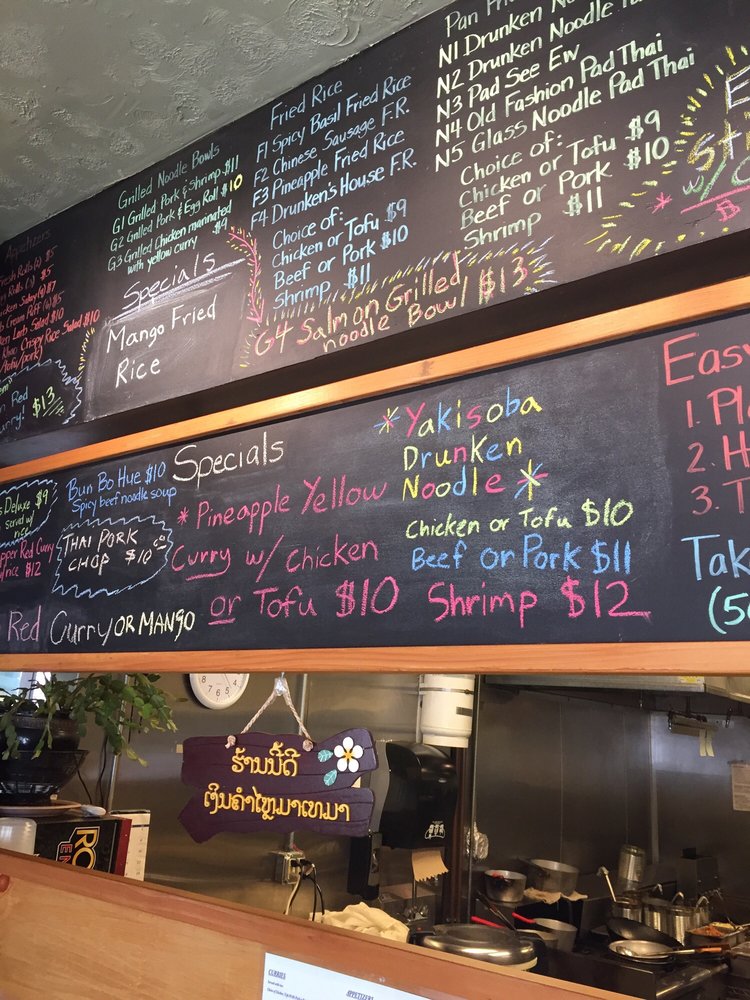 Appetizers
Fresh Rolls (2) $5
Rolls (2) $5
Chicken Satay (4) $7
Cream Puff (4) $5
Larb Salad $10
Khao Crispy Rice Salad $10
Red
Curry! $13
Grilled Noodle Bowls
G1 Grilled Pork & Shrimp $11
G2 Grilled Pork & Egg Roll $10
G3 Grilled Chicken marinated
with yellow curry $9
Specials
Mango Fried
Rice
Fried Rice
F1 Spicy Basil Fried Rice
F2 Chinese Sausage F.R.
F3 Pineapple Fried Rice
F4 Drunken's House F.R.
Choice of:
Chicken or Tofu $9
Beef or Pork $10
Shrimp $11
G4 Salmon Grilled
noodle Bowl $13
Pan
N1 Drunken Noodle
N2 Drunken Noodle
N3 Pad See Ew
N4 Old Fashion Pad Thai
N5 Glass Noodle Pad Thai
Choice of:
Chicken or Tofu $9
Beef or Pork $10
Shrimp $11
Deluxe $9
served w/
Red Curry
w/rice $12
Bun Bo Hue $10
Spicy beef noodle soup
THAI PORK
CHOP $10.00
Red Curry OR MANGO
Specials
* Pineapple Yellow
Curry w/ Chicken
or Tofu $10
* Yakisoba
Drunken
Noodle *
Chicken or Tofu $10
Beef or Pork $11
Shrimp $12
Easy
1.
2.
3.
ຮ້ານນີ້ດີ
ເງິນຄຳໄຫຼມາເທມາ
CURRIES
APPETIZERS